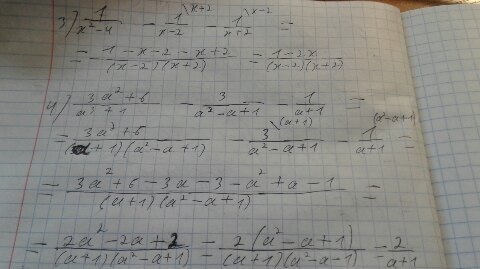 3) 1/(x²-4) - 1\x+2/(x-2) - 1\x-2/(x+2) =
= (1-x-2-x+2)/((x-2)(x+2)) = (1-2x)/((x-2)(x+2))
4) (3a²+6)/(a³+1) - 3/(a²-a+1) - 1/(a+1) =
= (3a³+6)/((a+1)(a²-a+1)) - 3\(a+1)/(a²-a+1) - 1\(a²-a+1)/(a+1) =
= (3a²+6-3a-3-a²+a-1)/((a+1)(a²-a+1)) =
= (2a²-2a+2)/((a+1)(a²-a+1)) = 2(a²-a+1)/((a+1)(a²-a-1)) = 2/(a+1)